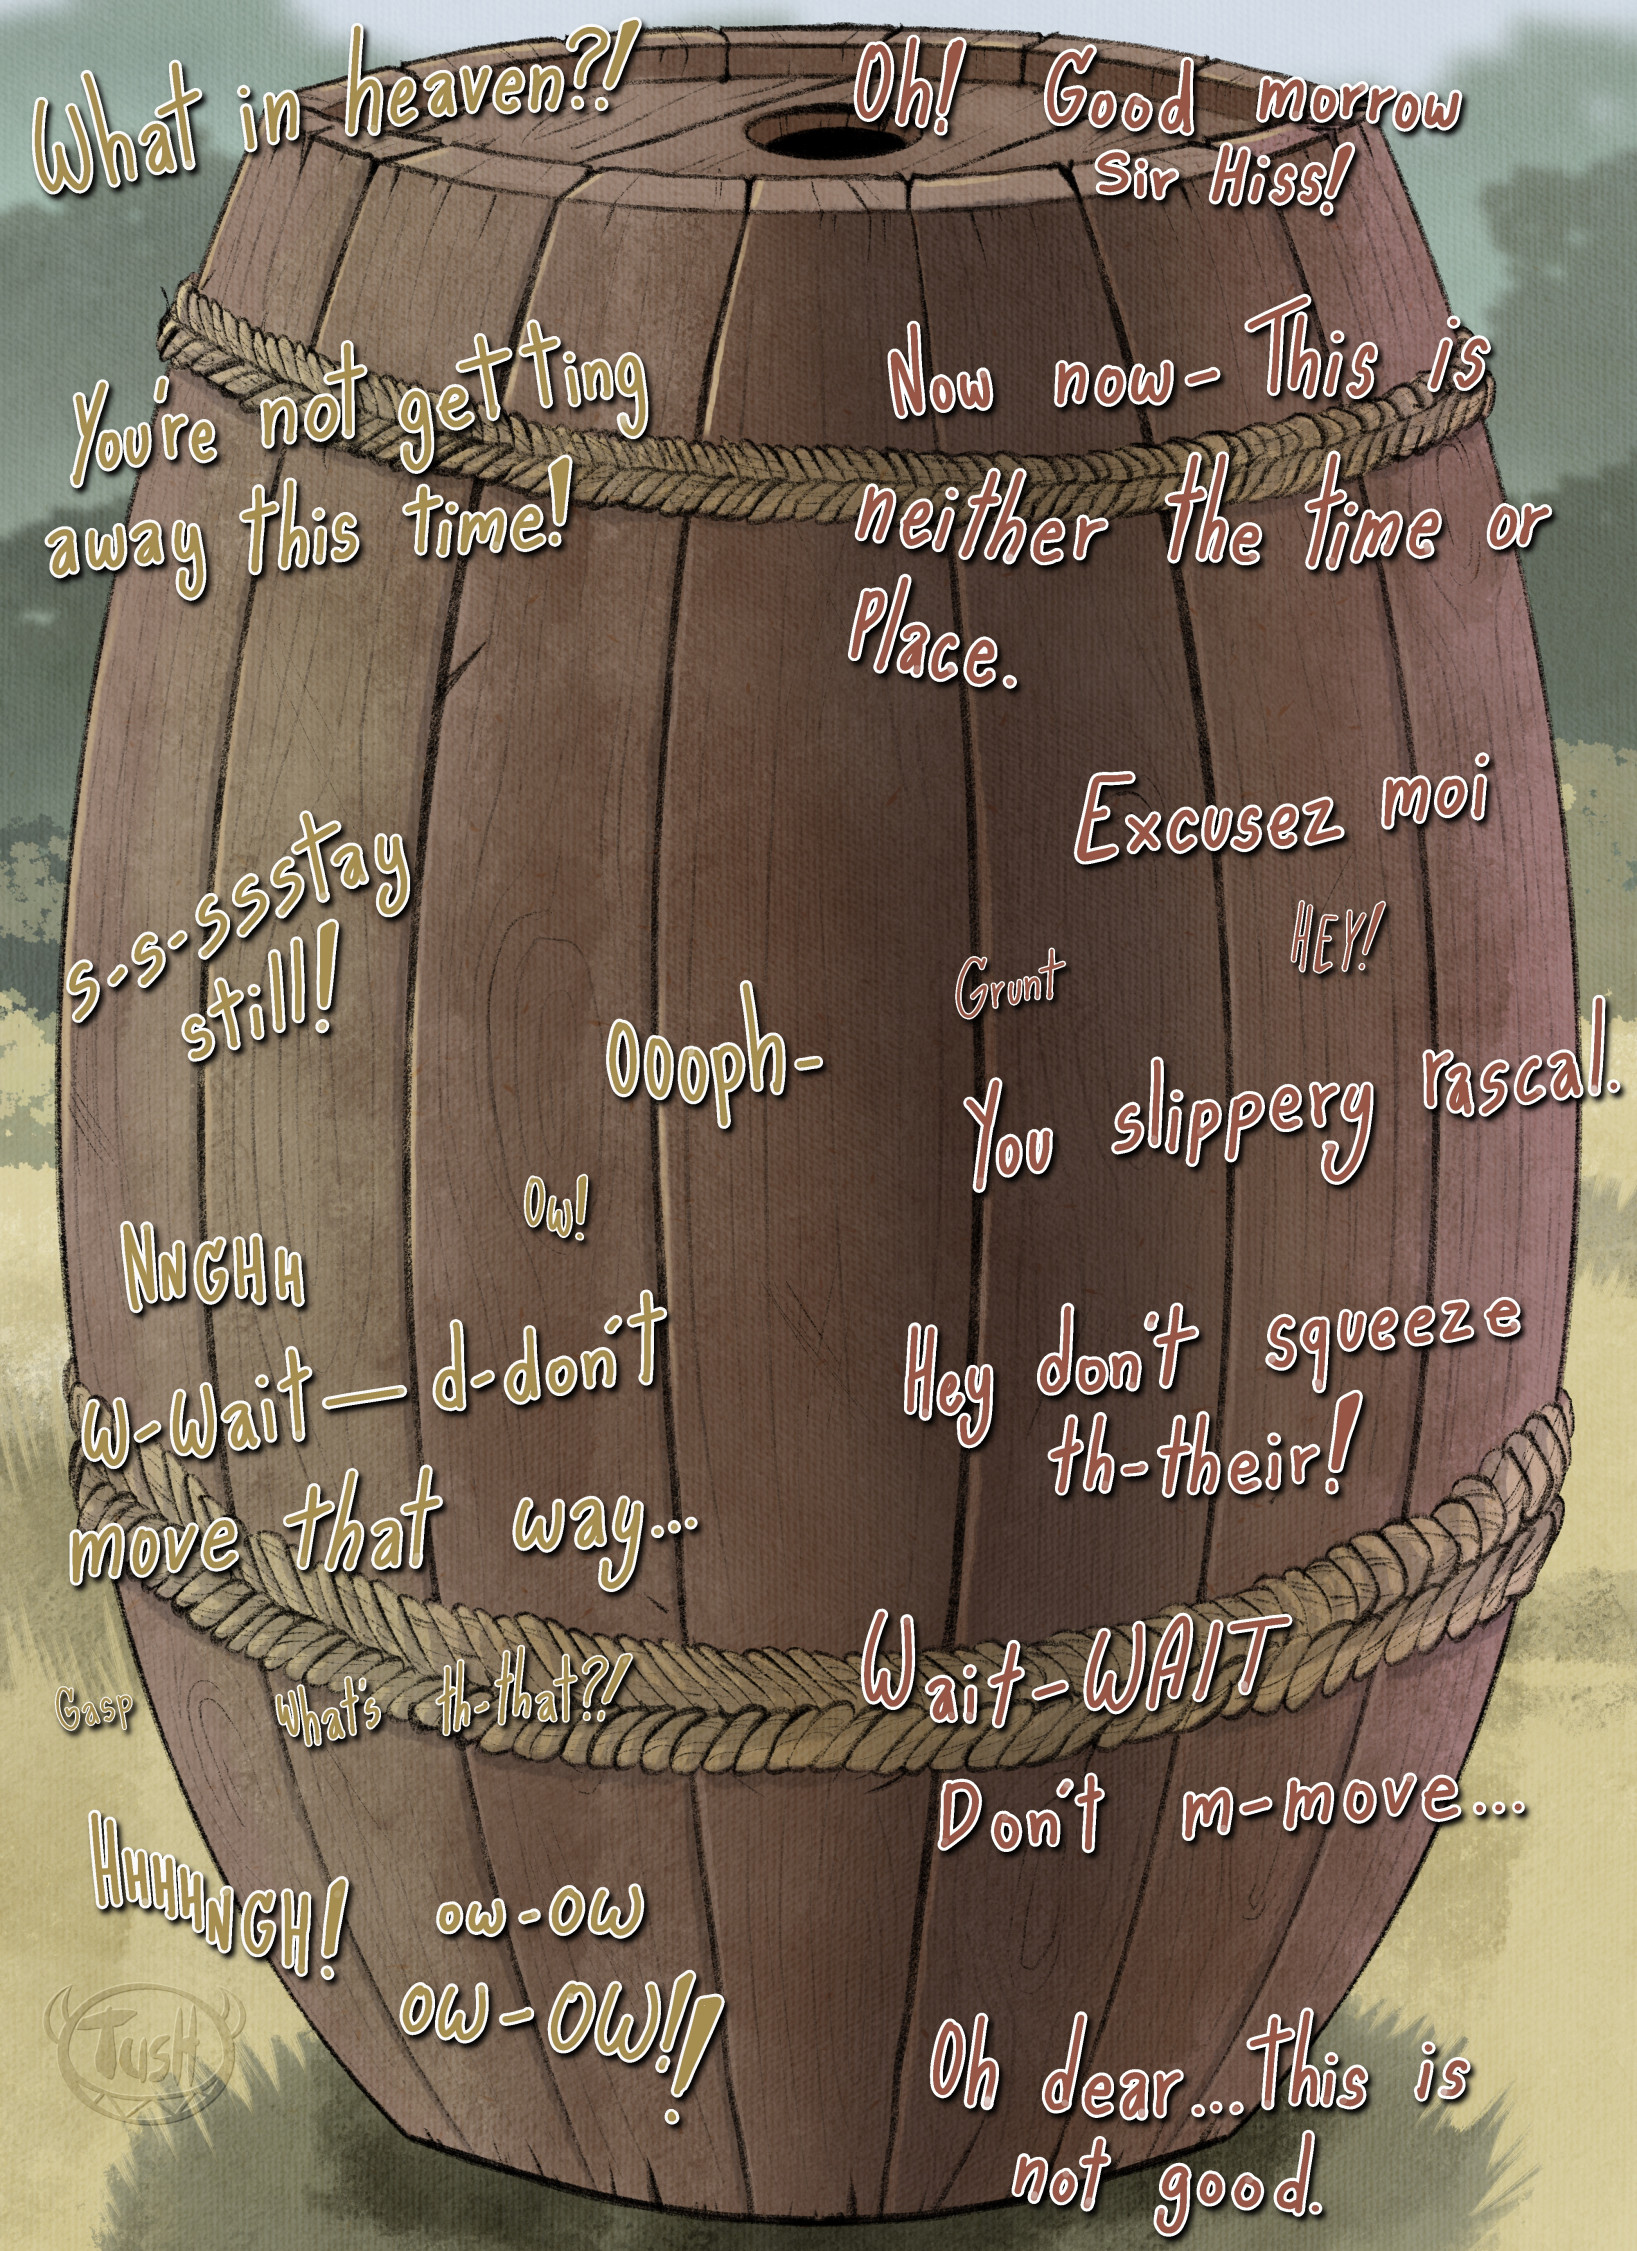 What in heaven?!
Oh! Good morrow
Sir Hiss!
You're not getting
away this time!
Now now- This is
neither the time or
Place.
Excusez moi
s-s-ssstay
still!
HEY!
Grunt
Oooph-
You slippery rascal.
Ow!
NNGHH
W-Wait— d-don't
move that way...
Hey don't squeeze
th-their!
Wait-WAIT
Gasp
What's th-that?!
Don't m-move...
HHHHNGH!
ow-OW
OW-OW!!
Oh dear...this is
not good.
TUSH